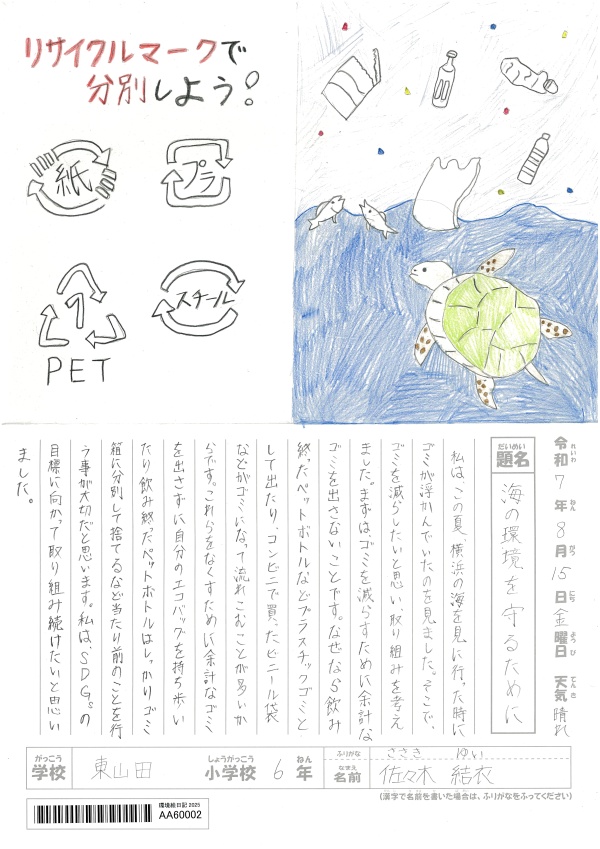 リサイクルマークで
分別しよう!
紙
プラ
1
PET
スチール
令和7年8月15日金曜日 天気 晴れ
れいわ ねん がつ にち ようび てんき
だいめい
題名
海の環境を守るために
私は、この夏、横浜の海を見に行った時に
ゴミが浮かんでいたのを見ました。そこで、
ゴミを減らしたいと思い、取り組みを考え
ました。まずは、ゴミを減らすために余計な
ゴミを出さないことです。なぜなら飲み
終ったペットボトルなどプラスチックゴミと
して出たり、コンビニで買ったビニール袋
などがゴミになって流れこむことが多いか
らです。これらをなくすために余計なゴミ
を出さずに自分のエコバッグを持ち歩い
たり飲み終ったペットボトルはしっかりゴミ
箱に分別して捨てるなど当たり前のことを行
う事が大切だと思います。私は、SDGsの
目標に向かって取り組み続けたいと思い
ました。
がっこう しょうがっこう ねん
学校 東山田 小学校 6年
ふりがな ささき ゆい
なまえ
名前 佐々木 結衣
(漢字で名前を書いた場合は、ふりがなをふってください)
環境絵日記 2025
AA60002